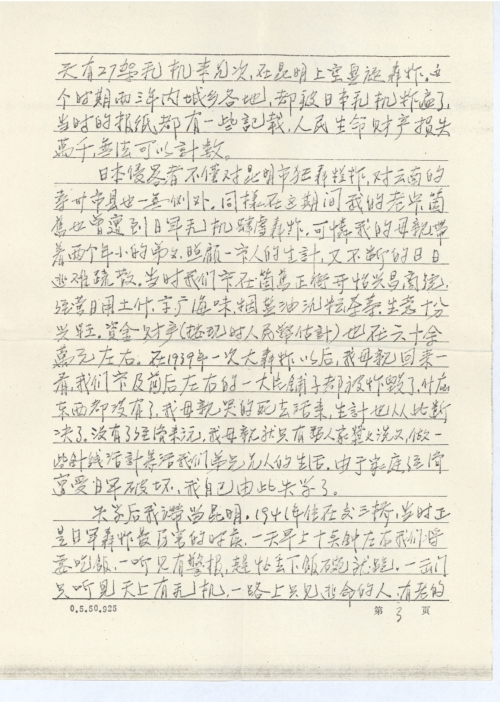 天有27架飞机来几次,在昆明上空盘旋轰炸。这
个时期两三年内城乡各地,却被日本飞机炸遍了,
当时的报纸都有一些記载,人民生命财产损失
萬千,無法可以計数。
日本侵畧者不僅对昆明市狂轰猛炸,对云南的
县也一無例外,同樣在这期间我的老家箇
舊也曾遭到日軍飞机轰炸,可憐我的母親帶
着两个年小的弟妹,照顧一市人的生計,又不断的日日
逃难疏散。当时我们市在箇舊正街开怡兴昌商號,
经营日用土什,京广海味,烟盐油生意十分
兴旺。资金财产(按现时人民幣估計)也在六十余
萬元左右。在1939年一次大轰炸以后,我母親回来一
看,我们市及前后左右的一大片舖子都被炸毁了,什庅
东西都没有了,我母親哭的死去活来,生計也从此断
决了,没有了经济来沅,我母親就只有帮人家浆衣洗衣做一
些針綫活計养活我们弟兄几人的生活。由于家庭经济
享受日軍破坏,我自己由此失学了。
失学后我才帶当昆明。1941年住在交三桥,当时正
是日軍轰炸最厉害的时候,一天早上十点钟左右我们正
要吃飯,一听见有警报,趕忙丢下飯碗就跑,一出门
只听見天上有飞机,一路上只見逃命的人,有老的
0.5.50.925
第 3 页